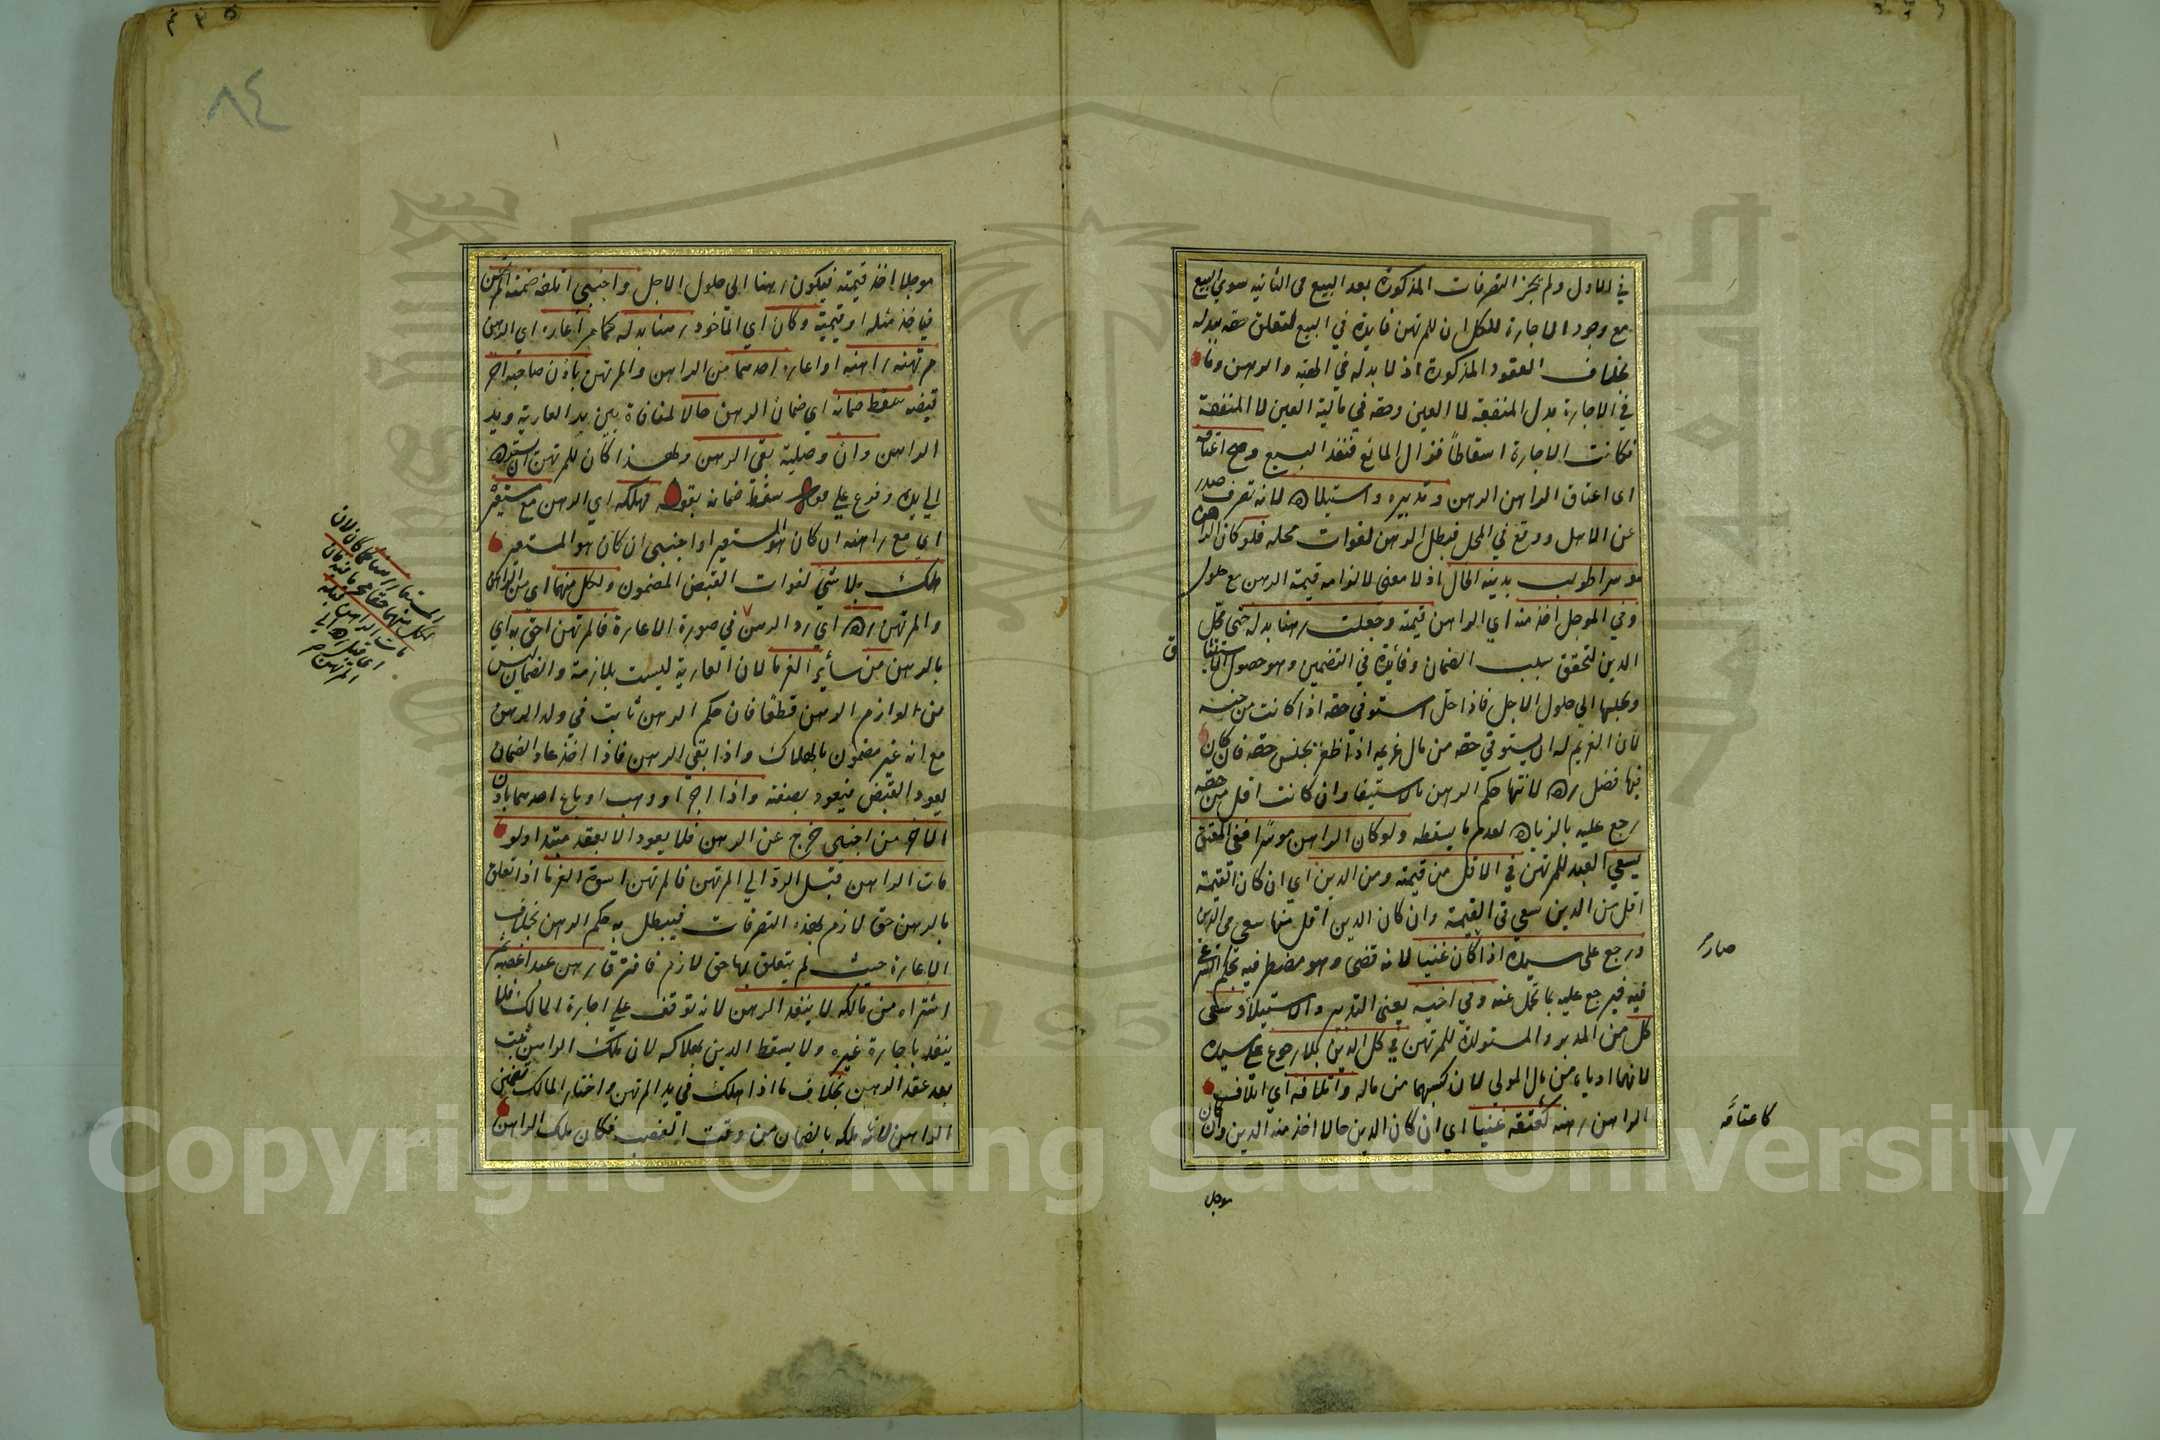 في الاول ولم يجز التصرفات المذكورة بعد البيع في الثانية سوي البيع
مع وجود الاجارة للكل ان للمرتهن فايدة في البيع لتعلق حقه ببدله
بخلاف العقود المذكورة اذ لا بدل في الهبة والرهن وما
في الاجارة بدل المنفعة لا العين وحقه في مالية العين لا المنفعة
فكانت الاجارة اسقاطا فزوال المانع فنفذ البيع وصح اعتاقه
اي اعتاق الراهن الرهن وتدبيره واستيلاده لانه تصرف صدر
عن الاهل ووقع في المحل فبطل الرهن لفوات محله فلو كان الراهن
موسرا طولب بدينه الحال اذ لا معنى لالزامه قيمة الرهن مع حلول
وفي الموجل اخذ منه اي الراهن قيمته وجعلت رهنا بدله حتى يحل
الدين لتحقق سبب الضمان وفائدة في التضمين وهو حصول الاستيثاق
وحبسها الي حلول الاجل فاذا حل استوفي حقه اذا كانت من جنسه
لان الغريم له ان يستوفي حقه من مال غريمه اذا ظفر بجنس حقه فان كان
فيها فضل رده لانتهاء حكم الرهن بالاستيفا وان كانت اقل من حقه
رجع عليه بالزيادة لعدم ما يسقطه ولو كان الراهن معسرا ففي العتق
يسعي العبد للمرتهن في الاقل من قيمته ومن الدين اي ان كان القيمة
اقل من الدين سعي في القيمة وان كان الدين اقل منها سعي في الدين
ورجع على سيده اذا كان غنيا لانه قضى وهو مضطر فيه بحكم الشرع
فيه فيرجع عليه بما تحمل عنه وفي اخيه يعني التدبير والاستيلاد سعي
كل من المدبر والمستولدة للمرتهن في كل الدين بلا رجوع على سيده
لانهما اديا من مال المولي لان كسبهما من ماله واتلافه اي اتلاف
الراهن رهنه كعتقه غنيا اي ان كان الدين حالا اخذ منه الدين وان كان
صار
كاعتاقه
موجل
موجلا اخذ قيمته فيكون رهنا الى حلول الاجل واجنبي اتلفه ضمنه المرتهن
فياخذ مثله او قيمته وكان اي الماخوذ رهنا بدله كما مر اعاره اي الرهن
مرتهنه راهنه او اعاره احدهما من الراهن والمرتهن باذن صاحبه اخر
قبضه سقط ضمانه اي ضمان الرهن حالا لمنافاة بين يد العارية ويد
الراهن وان وصلية بقي الرهن ولهذا كان للمرتهن ان يسترده
الي يده وفرع علي سقط ضمانه بقوله فهلكه اي الرهن مع مستعيره
اي مع راهنه ان كان هو المستعير او اجنبي ان كان هو المستعير
هلك بلا شي لفوات القبض المضمون ولكل منهما اي من الراهن
والمرتهن رده اي رد الرهن في صورة الاعارة فالمرتهن احق به اي
بالرهن من سائر الغرما لان العارية ليست بلازمة والضمان ليس
من لوازم الرهن قطعا فان حكم الرهن ثابت في ولد الرهن
مع انه غير مضمون بالهلاك واذا بقي الرهن فاذا اخذ عاد الضمان
ليعود القبض فيعود بصفته واذا اجر او وهب او باع احدهما باذن
الاخر من اجنبي خرج عن الرهن فلا يعود الا بعقد مبتدا ولو
مات الراهن قبل الرد الي المرتهن فالمرتهن اسوة الغرما اذ تعلق
بالرهن حق لازم بهذه التصرفات فيبطل به حكم الرهن بخلاف
الاعارة حيث لم يتعلق بها حق لازم فافترقا رهن عبدا غصبه ثم
اشتراه من مالكه لا ينفذ الرهن لانه توقف علي اجازة المالك فلا
ينفذ باجازة غيره ولا يسقط الدين بهلاكه لان ملك الراهن ثبت
بعد عقد الرهن بخلاف ما اذا هلك في يد المرتهن واختار المالك تضمين
الراهن لانه ملكه بالضمان من وقت الغصب فكان ملك الراهن
٨٤